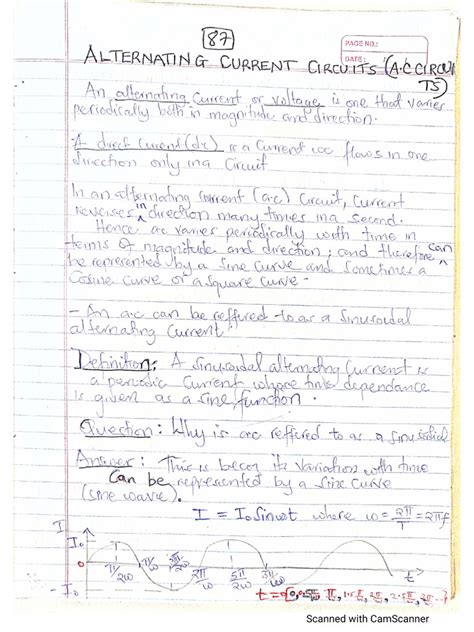 87
PAGE NO.:
DATE:
ALTERNATING CURRENT CIRCUITS (A.C CIRCUI
TS)
An alternating current or voltage is one that varies
periodically both in magnitude and direction.
A direct current (dc) is a current wc flows in one
direction only in a circuit
In an alternating current (a.c) circuit, current
reverses in direction many times in a second.
Hence a.c varies periodically with time in
terms of magnitude and direction; and therefore can
be represented by a sine curve and sometimes a
Cosine curve or a square curve -
- An a.c can be reffured to as a sinusoidal
alternating current"
Definition: A sinusoidal alternating current is
a periodic current whose time dependance
is given as a sine function.
Question: Why is a.c reffered to as a sinusoidal
Answer: This is becoz its variation with time
Can be represented by a sine curve
(sine wave).
I = I₀ sin wt where ω = 2π/T = 2πf
I
I₀
0
- I₀
π/2ω π/ω 3π/2ω 2π/ω 5π/2ω 3π/ω t
Scanned with CamScanner